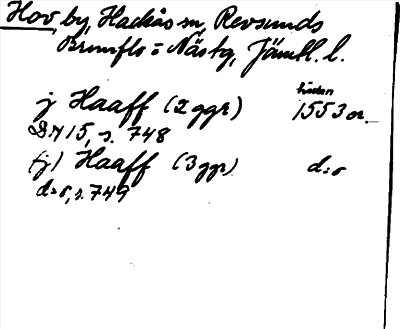 Hov, by, Hackås sn, Revsunds
Brunflo o Näs tg, Jämtl. l.
j Haaff (2 ggr) hösten 1553 or.
DN 15, s. 748
(j) Haaff (3 ggr) d:o
d:o, s. 749